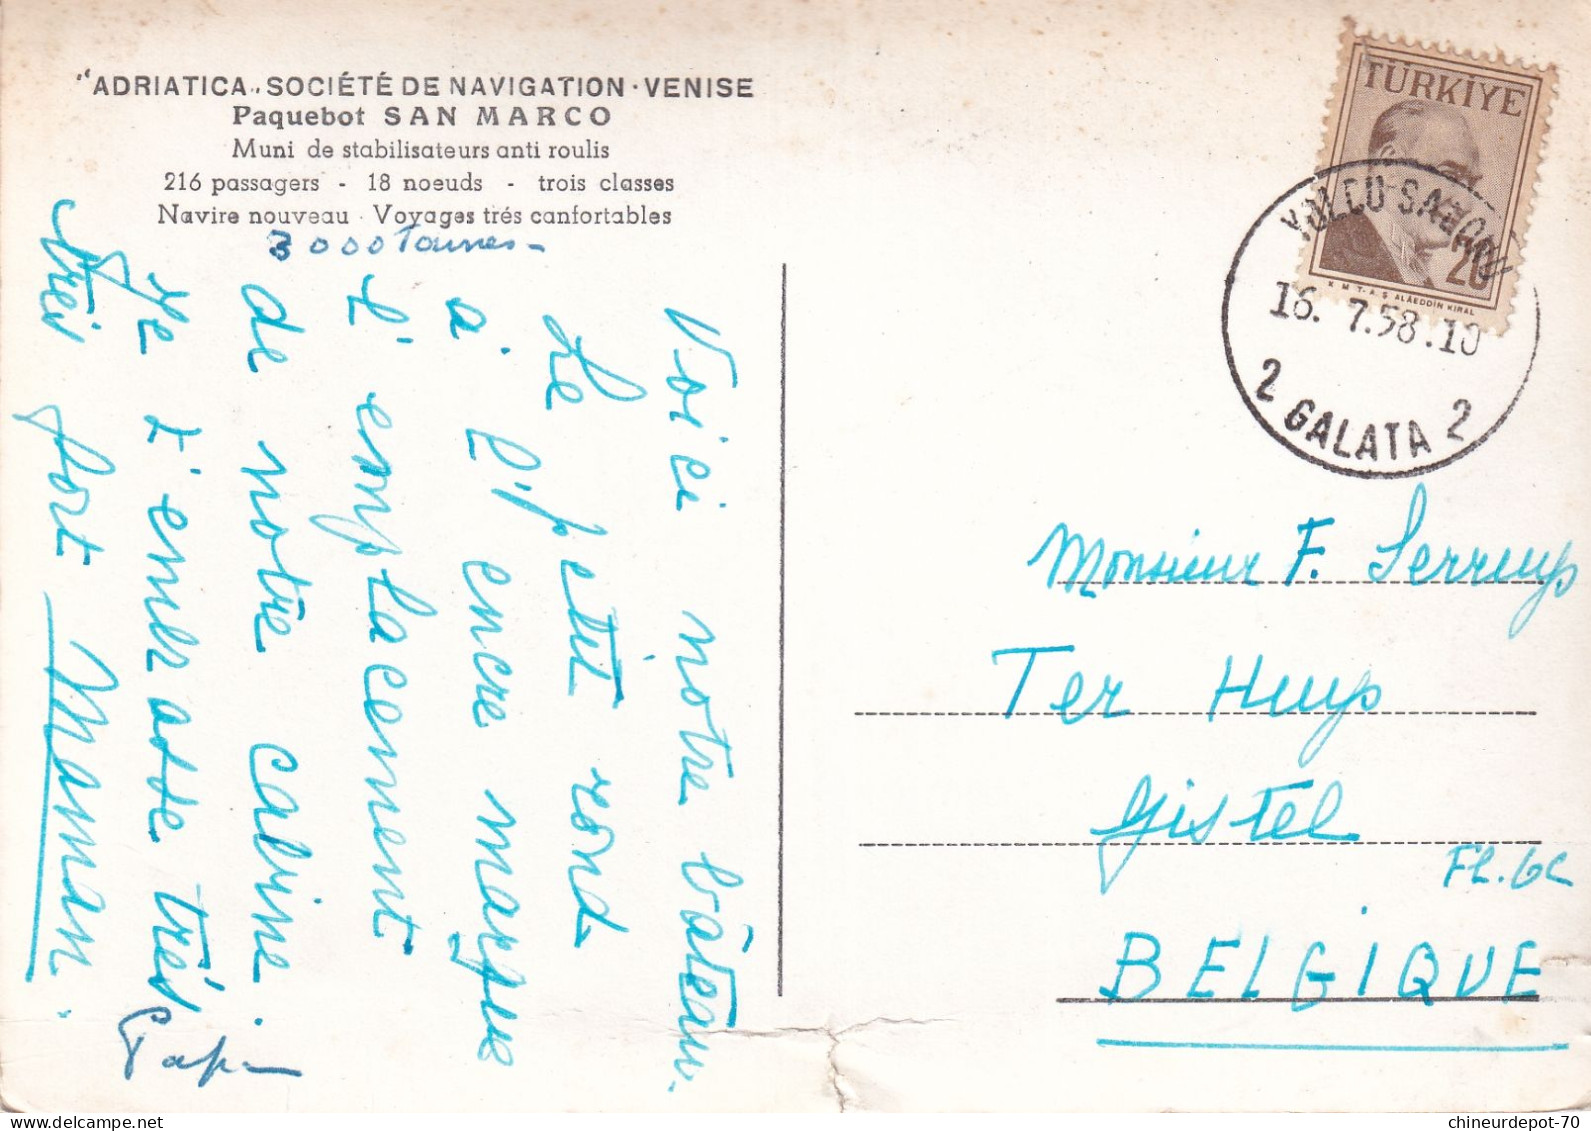 "ADRIATICA„ SOCIÉTÉ DE NAVIGATION · VENISE
Paquebot SAN MARCO
Muni de stabilisateurs anti roulis
216 passagers - 18 noeuds - trois classes
Navire nouveau · Voyages trés canfortables
3000 Tonnes -
Voici notre bâteau.
Le petit rond
a' l'encre marque
l'emplacement
de notre cabine.
Je t'embrasse très
très fort Maman.
Papa
TÜRKİYE
20
K. M. T.A.Ş. ALÂEDDİN KIRAL
YOLCU SALONU
16. 7.58.10
2 GALATA 2
Monsieur F. Serruys
Ter Huys
Gistel
Fl. Oc
BELGIQUE
delcampe.net
chineurdepot-70